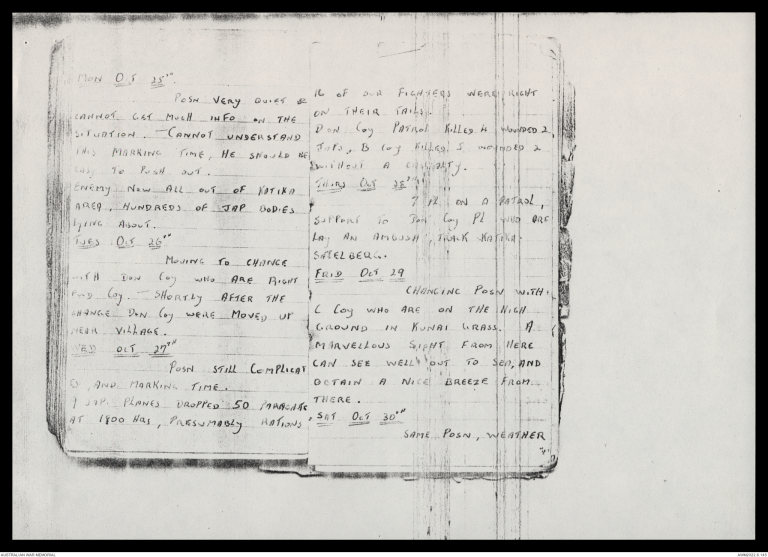 MON OCT 25TH
POSN VERY QUIET &
CANNOT GET MUCH INFO ON THE
SITUATION. - CANNOT UNDERSTAND
THIS MARKING TIME, HE SHOULD BE
EASY TO PUSH OUT.
ENEMY NOW ALL OUT OF KATIKA
AREA, HUNDREDS OF JAP BODIES
LYING ABOUT.
TUES OCT 26TH
MOVING TO CHANGE
WITH DON COY WHO ARE RIGHT
FWD COY. - SHORTLY AFTER THE
CHANGE DON COY WERE MOVED UP
NEAR VILLAGE.
WED OCT 27TH
POSN STILL COMPLICAT
ED, AND MARKING TIME.
9 JAP PLANES DROPPED 50 PARACHUTES
AT 1800 HRS, PRESUMABLY RATIONS,
16 OF OUR FIGHTERS WERE RIGHT
ON THEIR TAILS.
DON COY PATROL KILLED 4 WOUNDED 2
JAPS, B COY KILLED 5 WOUNDED 2
WITHOUT A CASUALTY.
THURS OCT 28TH
7 PL ON A PATROL,
SUPPORT TO DON COY PL WHO ARE
LAY AN AMBUSH, TRACK KATIKA
SATELBERG.
FRID OCT 29
CHANGING POSN WITH
C COY WHO ARE ON THE HIGH
GROUND IN KUNAI GRASS. A
MARVELLOUS SIGHT FROM HERE
CAN SEE WELL OUT TO SEA, AND
OBTAIN A NICE BREEZE FROM
THERE.
SAT OCT 30TH
SAME POSN, WEATHER
AUSTRALIAN WAR MEMORIAL